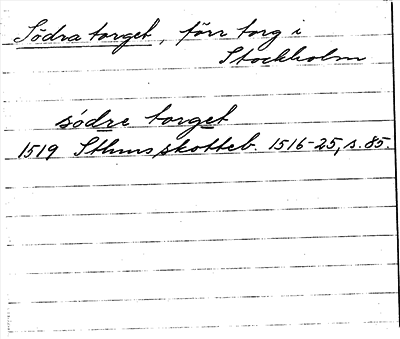 Södra torget, förr torg i
Stockholm
södre torget
1519 Sthms skotteb. 1516-25, s. 85.